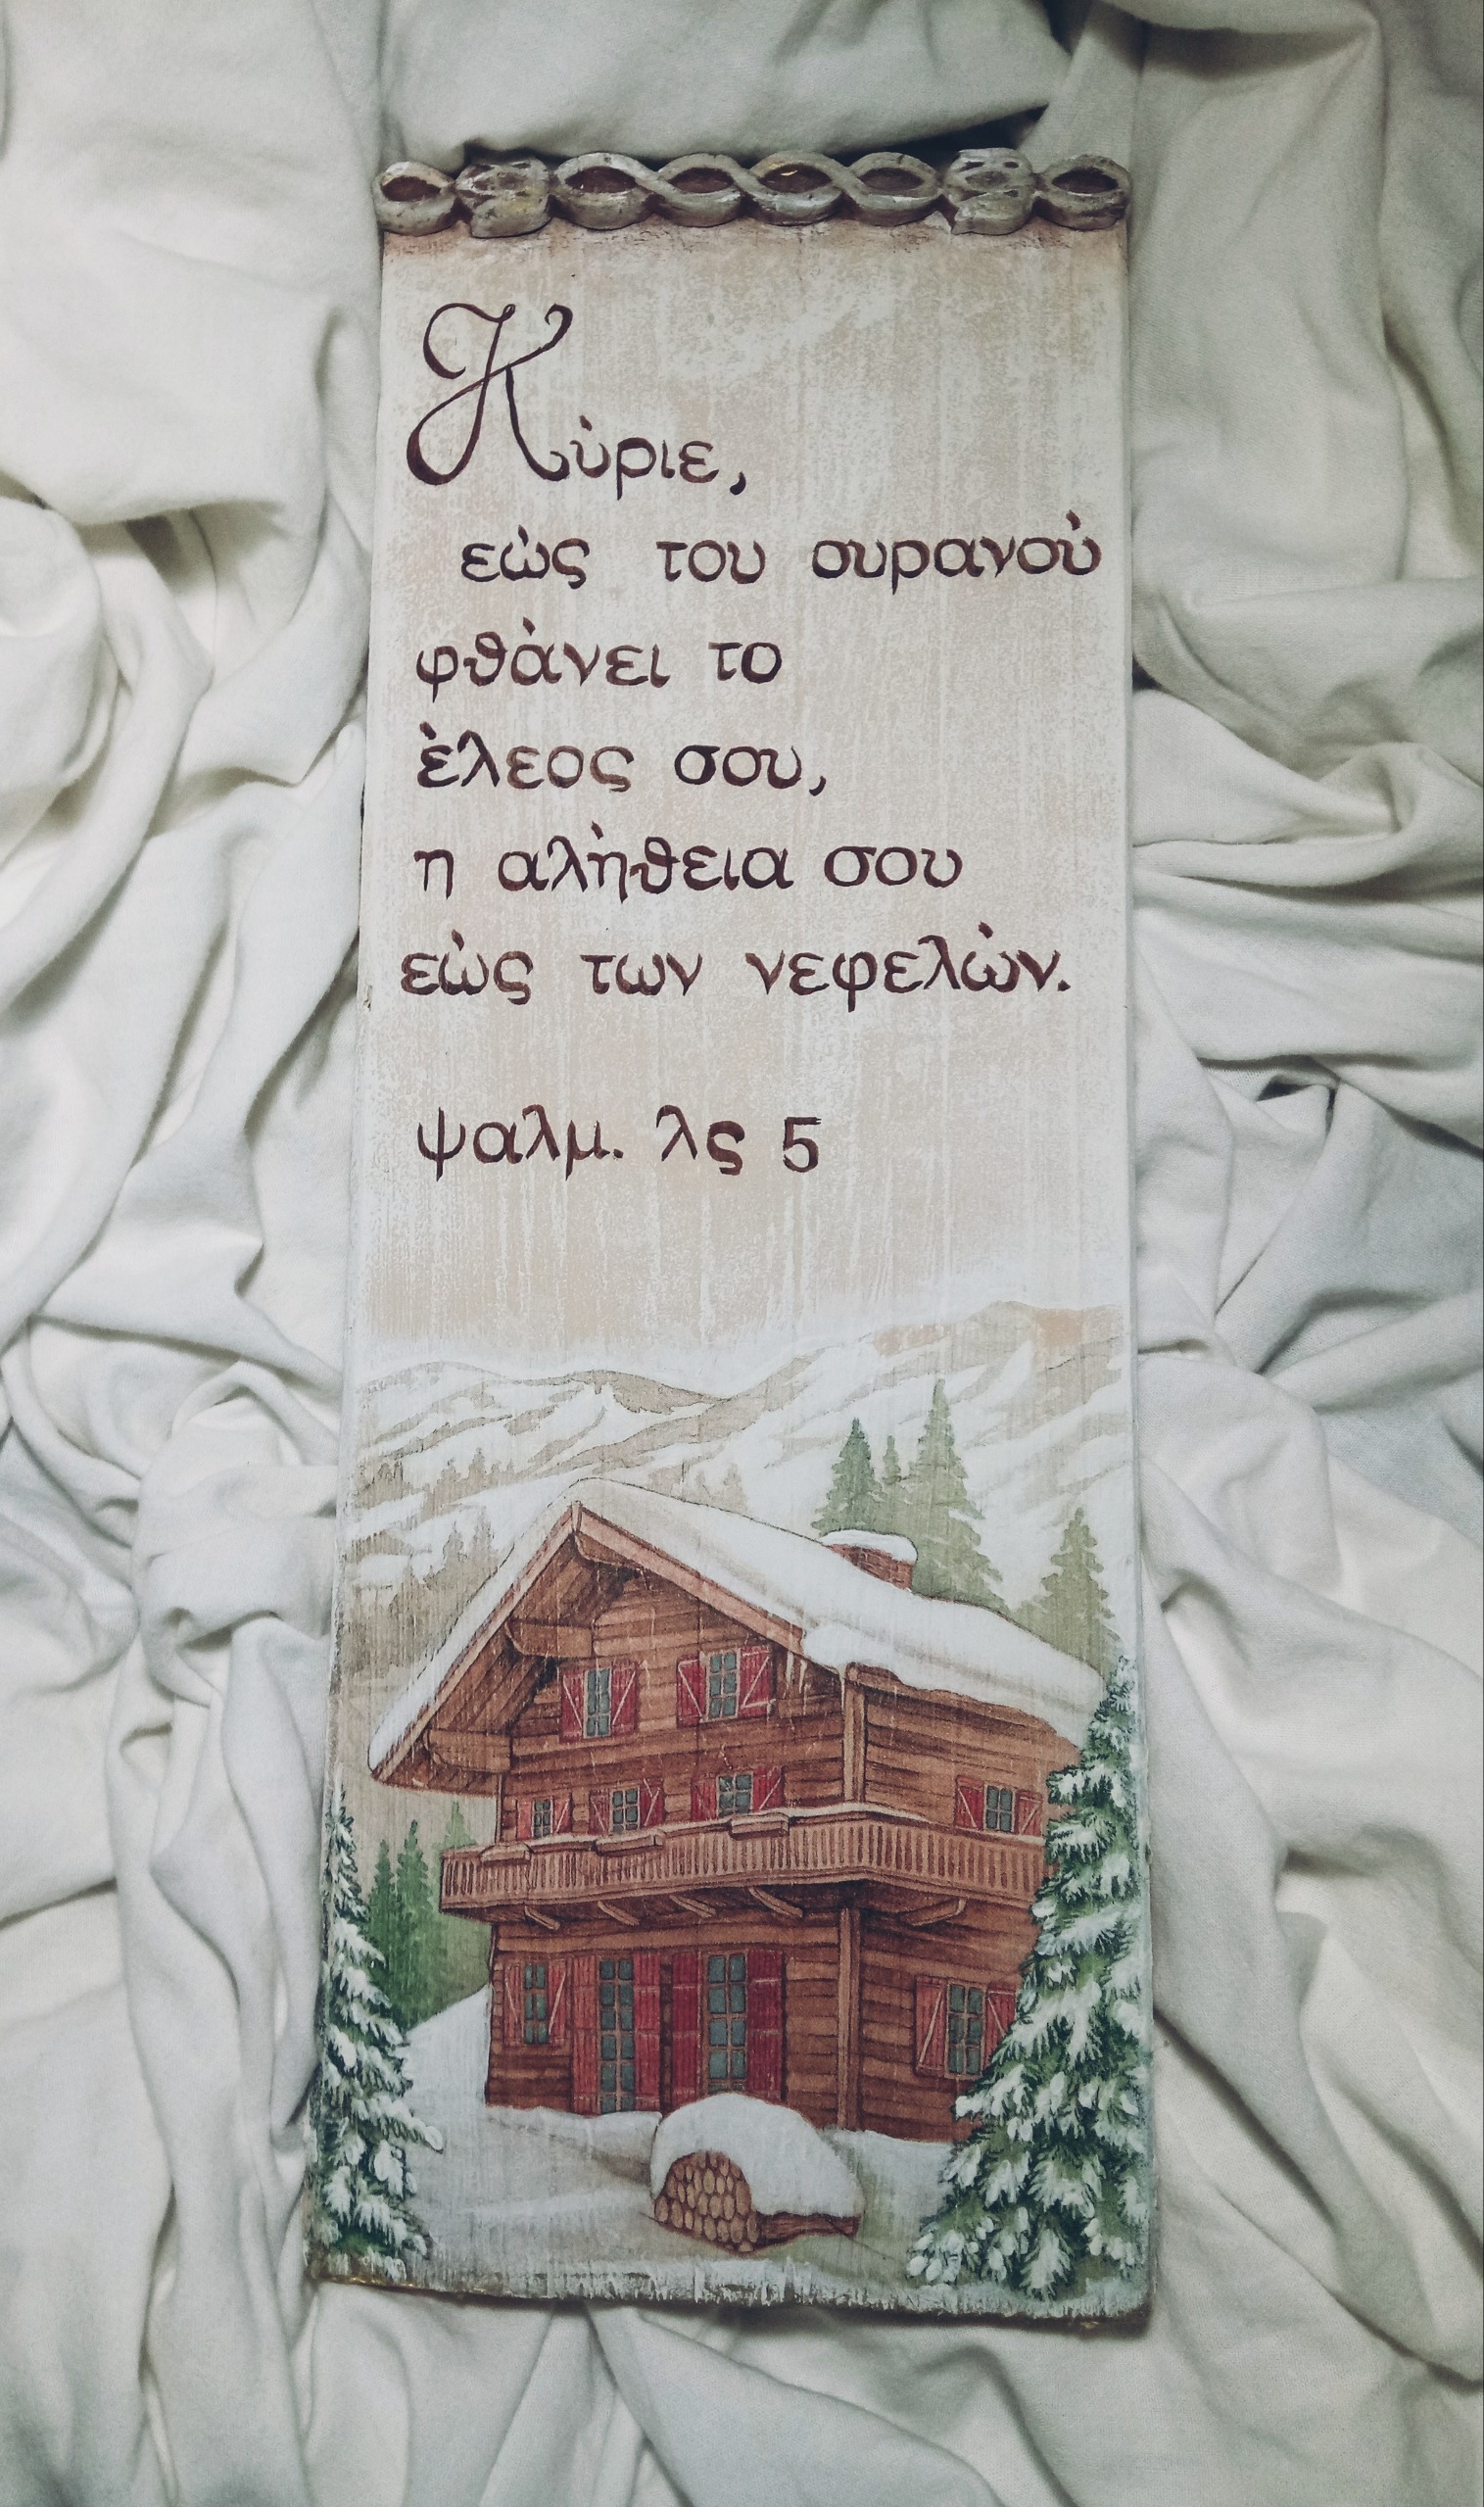 Κύριε,
εώς του ουρανού
φθάνει το
έλεος σου,
η αλήθεια σου
εώς των νεφελών.
ψαλμ. λς 5